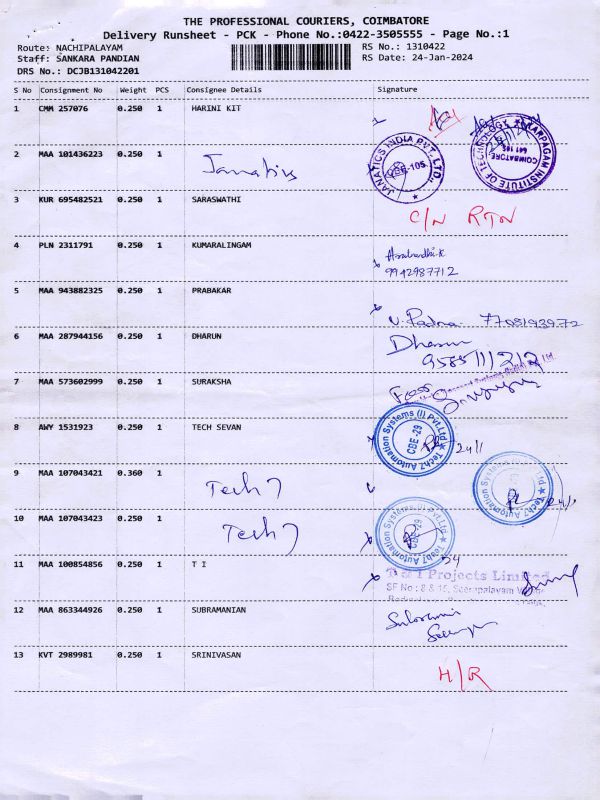 THE PROFESSIONAL COURIERS, COIMBATORE
Delivery Runsheet - PCK - Phone No.:0422-3505555 - Page No.:1
Route: NACHIPALAYAM
RS No.: 1310422
Staff: SANKARA PANDIAN
RS Date: 24-Jan-2024
DRS No.: DCJB131042201
S No Consignment No Weight PCS Consignee Details Signature
1 CMM 257076 0.250 1 HARINI KIT
KARPAGAM INSTITUTE OF TECHNOLOGY COIMBATORE 641 105
2 MAA 101436223 0.250 1 Janatics
JANATICS INDIA PVT. LTD., CBE-105
3 KUR 695482521 0.250 1 SARASWATHI C/N RTN
4 PLN 2311791 0.250 1 KUMARALINGAM
9942987712
5 MAA 943882325 0.250 1 PRABAKAR
V. Padma
6 MAA 287944156 0.250 1 DHARUN Dharun
7 MAA 573602999 0.250 1 SURAKSHA
8 AWY 1531923 0.250 1 TECH SEVAN
Tech7 Automation Systems (I) Pvt.Ltd CBE-29
24/1
9 MAA 107043421 0.360 1 Tech 7
10 MAA 107043423 0.250 1 Tech 7
Tech7 Automation Systems (I) Pvt.Ltd CBE-29
24
11 MAA 100854856 0.250 1 T I
T & I Projects Limited
12 MAA 863344926 0.250 1 SUBRAMANIAN
13 KVT 2989981 0.250 1 SRINIVASAN H/R